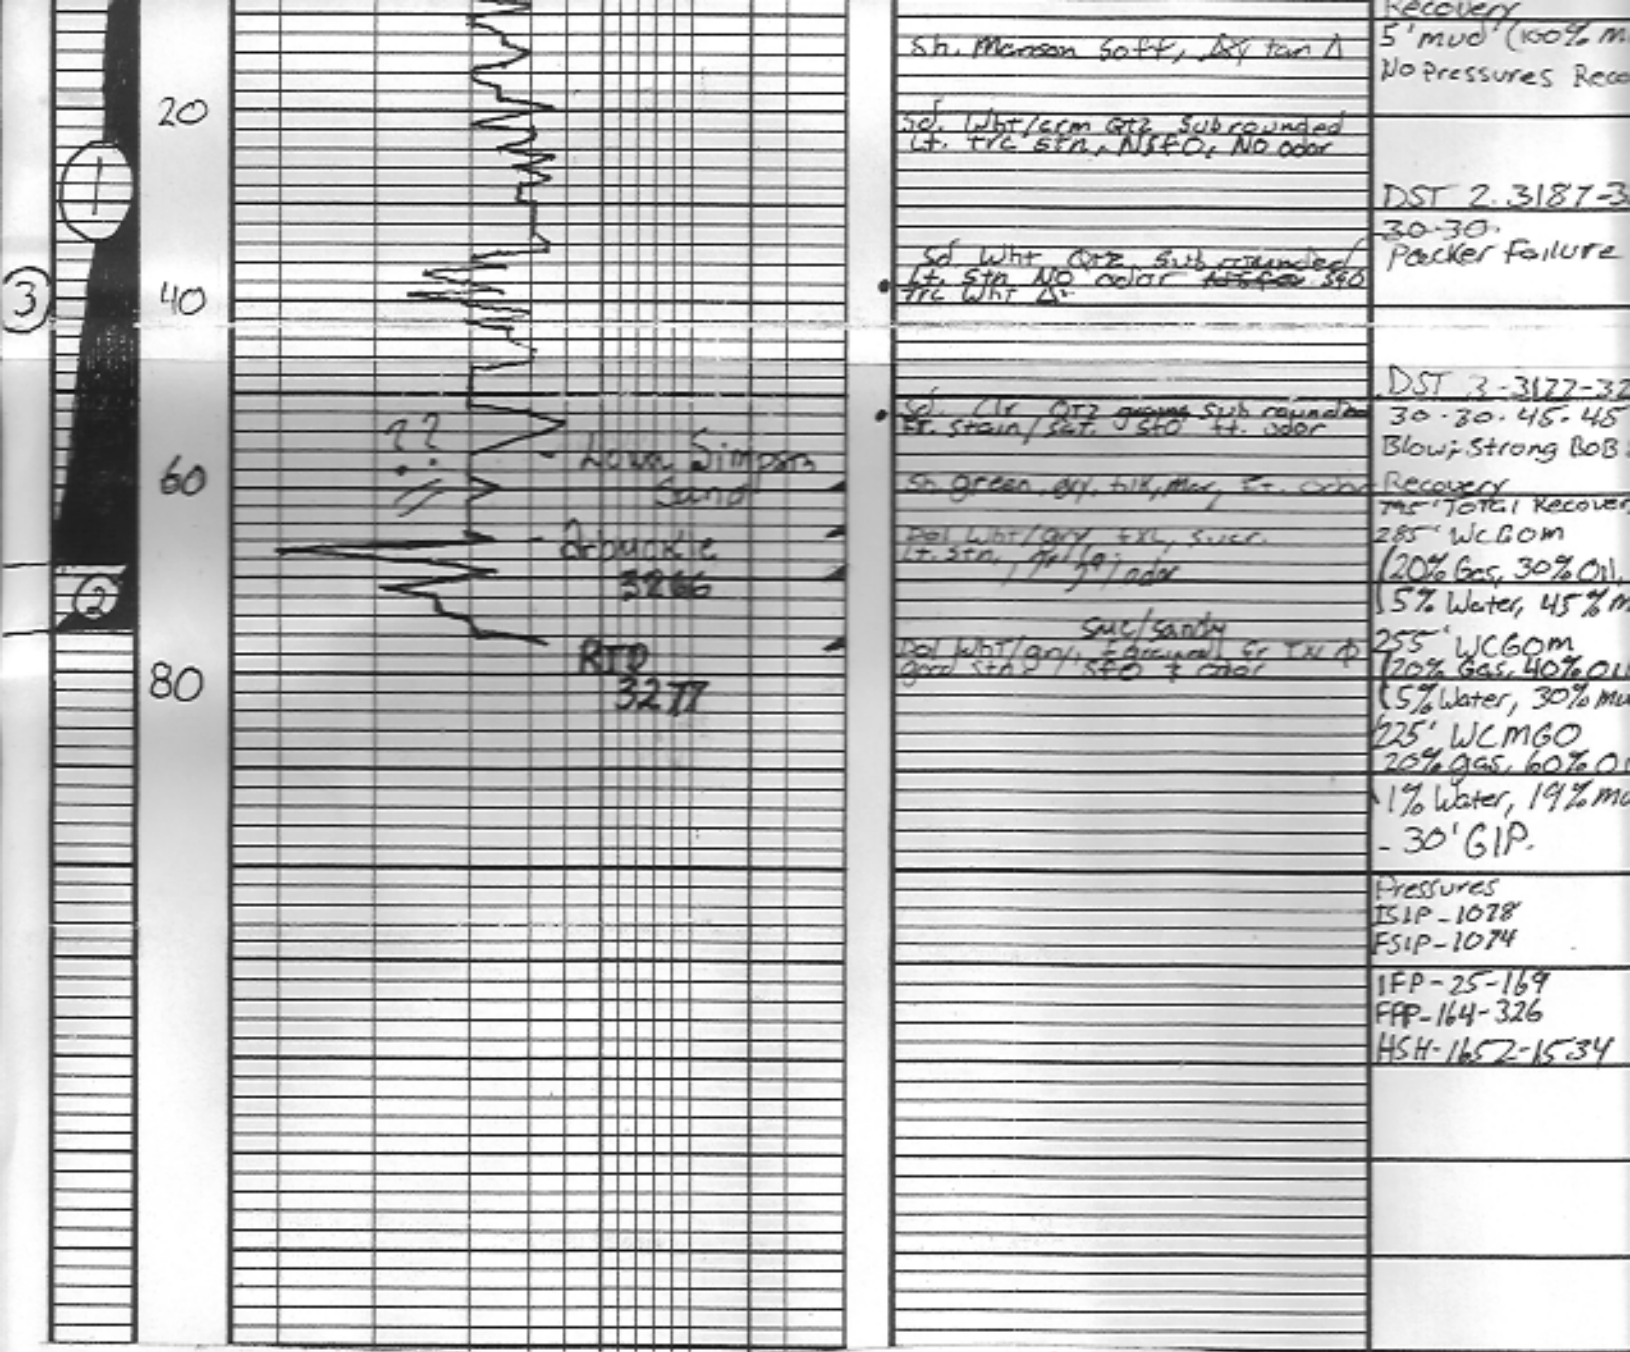 20
1
40
3
60
2
80
??
Simpson
Sand
Arbuckle
3266
RTD
3277
Sh. Maroon Soft, tan Δ
Sd. Wht/crm Qtz Subrounded
Lt. trc stn, NSFO, No odor
Sd. Wht Qtz Subrounded
Lt. stn NO odor SFO
Trc Wht Δ
Sd. Clr Qtz Subrounded
Fr. Stain/Sat. SFO ft. odor
Sh. green, gy, blk, Mar, Ft. odor
Dol Wht/gry, fxl, sucr.
Lt. Stn, odor
suc/sandy
Dol Wht/gry, fr
good stn, SFO & odor
Recovery
5' mud (100% m
No Pressures Reco
DST 2. 3187-3
30-30.
Packer Failure
DST 3-3177-32
30-30-45-45
Blow; Strong BOB
Recovery
795' Total Recover
285' WCGOM
(20% Gas, 30% Oil,
(5% Water, 45% m
255' WCGOM
(20% Gas, 40% Oil
(5% Water, 30% mu
225' WCMGO
20% gas, 60% Oi
1% Water, 19% mu
- 30' GIP.
Pressures
ISIP-1078
FSIP-1074
IFP-25-169
FFP-164-326
HSH-1652-1534